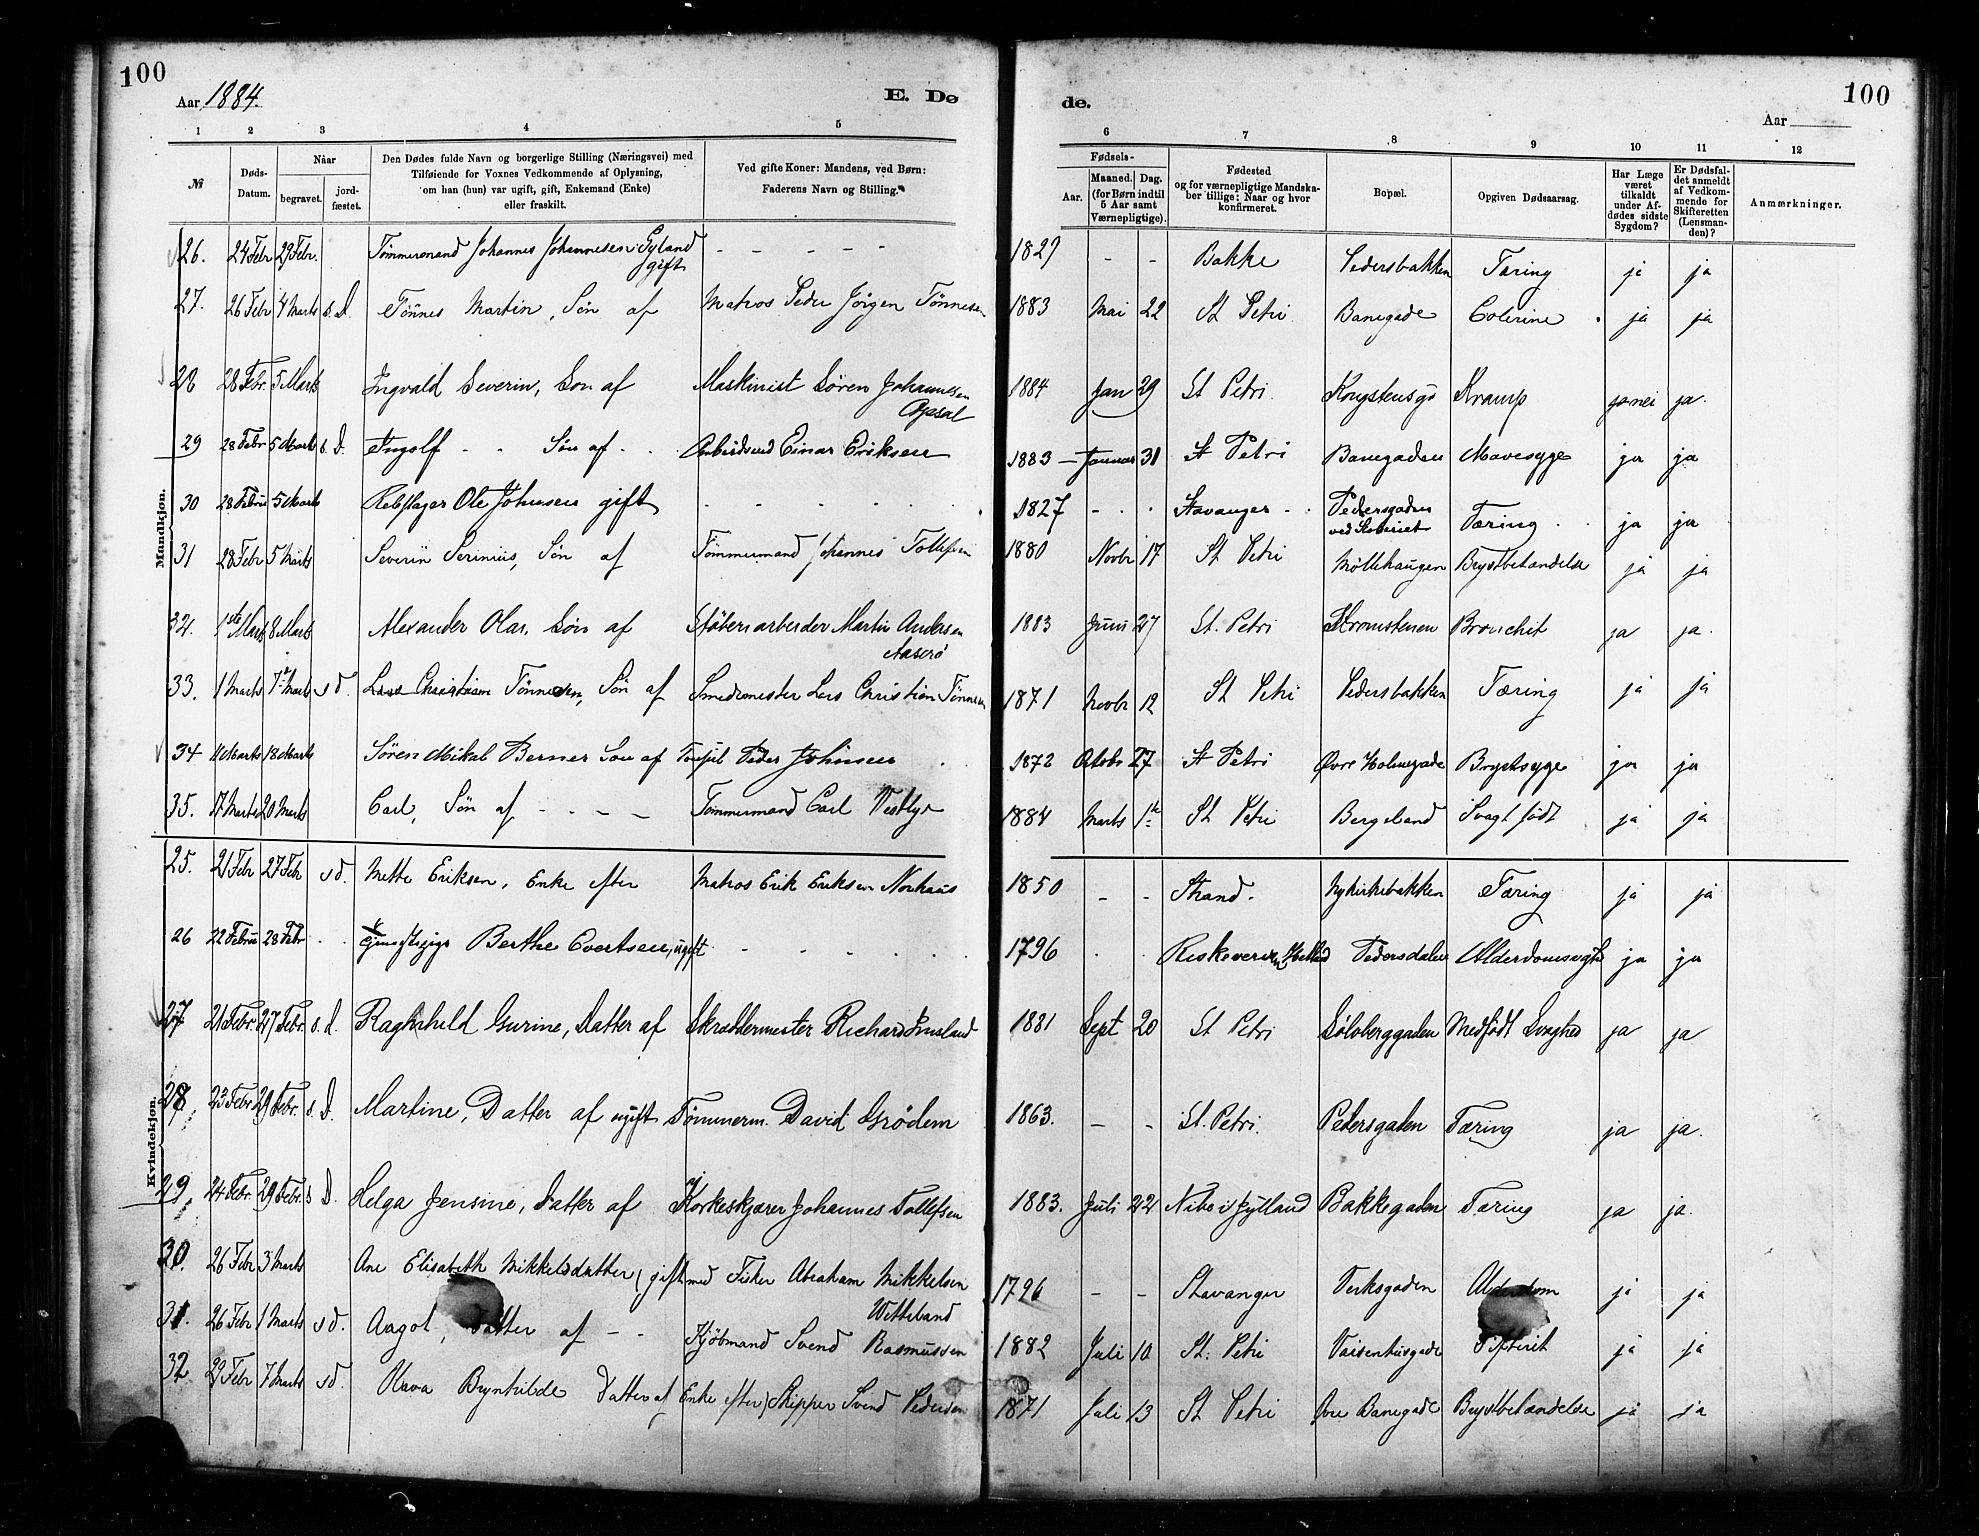 100
Aar 1884.
E. Dø
de.
100
Aar
1 2 3 4 5 6 7 8 9 10 11 12
№
Døds-Datum.
Naar
begravet.
jord-fæstet.
Den Dødes fulde Navn og borgerlige Stilling (Næringsvei) med
Tilføiende for Voxnes Vedkommende af Oplysning,
om han (hun) var ugift, gift, Enkemand (Enke)
eller fraskilt.
Ved gifte Koner: Mandens, ved Børn:
Faderens Navn og Stilling.
Fødsels-
Aar.
Maaned. Dag.
(for Børn indtil
5 Aar samt
Værnepligtige).
Fødested
og for værnepligtige Mandska-
ber tillige: Naar og hvor
konfirmeret.
Bopæl.
Opgiven Dødsaarsag.
Har Læge
været
tilkaldt
under Af-
dødes sidste
Sygdom?
Er Dødsfal-
det anmeldt
af Vedkom-
mende for
Skifteretten
(Lensman-
den)?
Anmærkninger.
Mandkjøn.
26. 24 Febr 29 Febr. Tømmermand Johannes Johannesen Gyland gift - - - - - 1827 - - Bakke Pedersbakken Tæring ja ja
27. 26 Febr 4 Marts s.d. Tønnes Martin, Søn af Matros Peder Jørgen Tønnesen 1883 Mai 22 St Petri Banegade Colerine ja ja
28 28 Febr. 5 Marts Ingvald Severin, Søn af Maskinist Søren Johannesen Opsal 1884 Jan 29 St Petri Kongstensgd Kramp ja nei ja.
29 28 Febr 5 Marts s.d. Ingolf - - Søn af - - Arbeidsmd Einar Eriksen 1883 - Januar 31 St Petri Banegaden Mavesyge ja ja
30 28 Februar 5 Marts Rebslager Ole Johnsen gift - - - - - 1827 - - Stavanger - - Pedersgaden ved Taarnet Tæring - - ja ja
31 28 Febr 5 Marts Severin Serinius, Søn af Tømmermand Johannes Tollefsen 1880 Novbr 17 St Petri Møllehaugen Brystbetændelse ja ja
32. 1ste Marts 8 Marts Alexander Olai, Søn af Støberiarbeider Martin Andersen Aaserø 1883 Juni 27 St. Petri Kronistenen Bronchit ja ja.
33. 1 Marts 7de Marts s d. Lars Christian Tønnesen, Søn af Smedemester Lars Christian Tønnesen 1871 Novbr 12 St Petri Pedersbakken Tæring ja ja
34 11 Marts 18 Marts Søren Mikal Berner Søn af Peder Johnsen 1872 Oktobr 27 St Petri Øvre Holmegade Brystsyge ja ja
35. 17 Marts 20 Marts Carl, Søn af - - - - Tømmermand Carl Vestlye 1884 Marts 1te St Petri Bergeland Svagt født ja ja
Kvindekjøn.
25. 21 Febr 27 Febr s d. Mette Eriksen, Enke efter Matros Erik Eriksen Norhaus 1850 - - Strand. Nykirkebakken Tæring ja ja
26 22 Februar 28 Febr - - Tjenestepige Berthe Evertsen, ugift - - - - - 1796 - - Pedersdalen Alderdomssvaghed ja ja
27 21 Febr. 27 Febr. s.d. Ragnhild Gurine, Datter af Skræddermester Richard Imsland 1881 Sept 20 St Petri Sølvberggaden Medfødt Svaghed ja ja
28. 23 Febr 29 Febr. s.d. Martine, Datter af ugift Tømmerm. David Grødem 1863. - - St. Petri. Pedersgaden Tæring ja ja.
29. 24 Febr. 29 Febr. s D. Helga Jensine, Datter af Korkeskjærer Johannes Tollefsen 1883. Juli 22 Nibe i Jylland Bakkegaden Tæring ja ja.
30. 26 Febr 3 Marts Ane Elisabeth Mikkelsdatter, gift med Fisker Abraham Mikkelsen Wetteland 1796 - - Stavanger Verksgaden Alderdom ja ja
31. 26 Febr 1 Marts s d. Aagot, Datter af - - Kjøbmand Svend Rasmussen 1882 Juli 10 St. Petri Vaisenhusgade Difterit ja ja
32 29 Febr 7 Marts s d. Olava Brynhilde Datter af Enke efter) Skipper Svend Pedersen 1871 Juli 13 St Petri Øvre Banegade Brystbetændelse ja ja